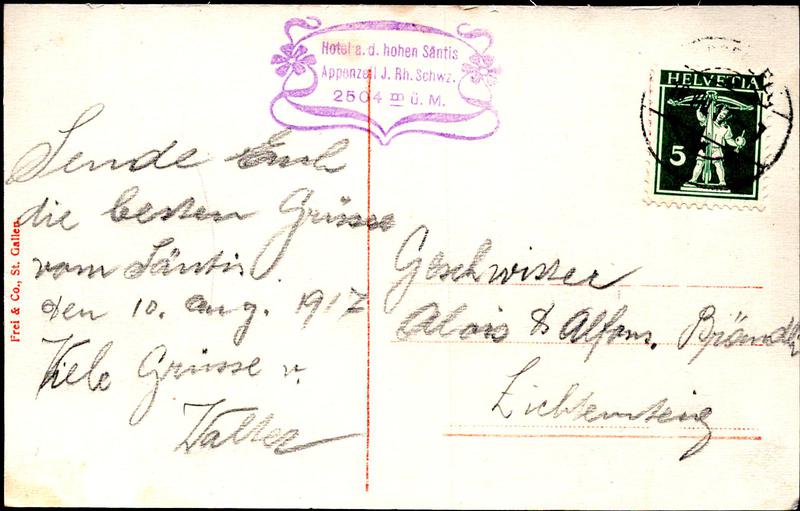 Hotel a. d. hohen Säntis
Appenzell J. Rh. Schwz.
2504 m ü. M.
HELVETIA
5
Sende Euch
die besten Grüsse
vom Säntis
den 10. Aug. 1917
Viele Grüsse v.
Walter
Geschwister
Alois & Alfons. Brändle
Lichtensteig
Frei & Co., St. Gallen.